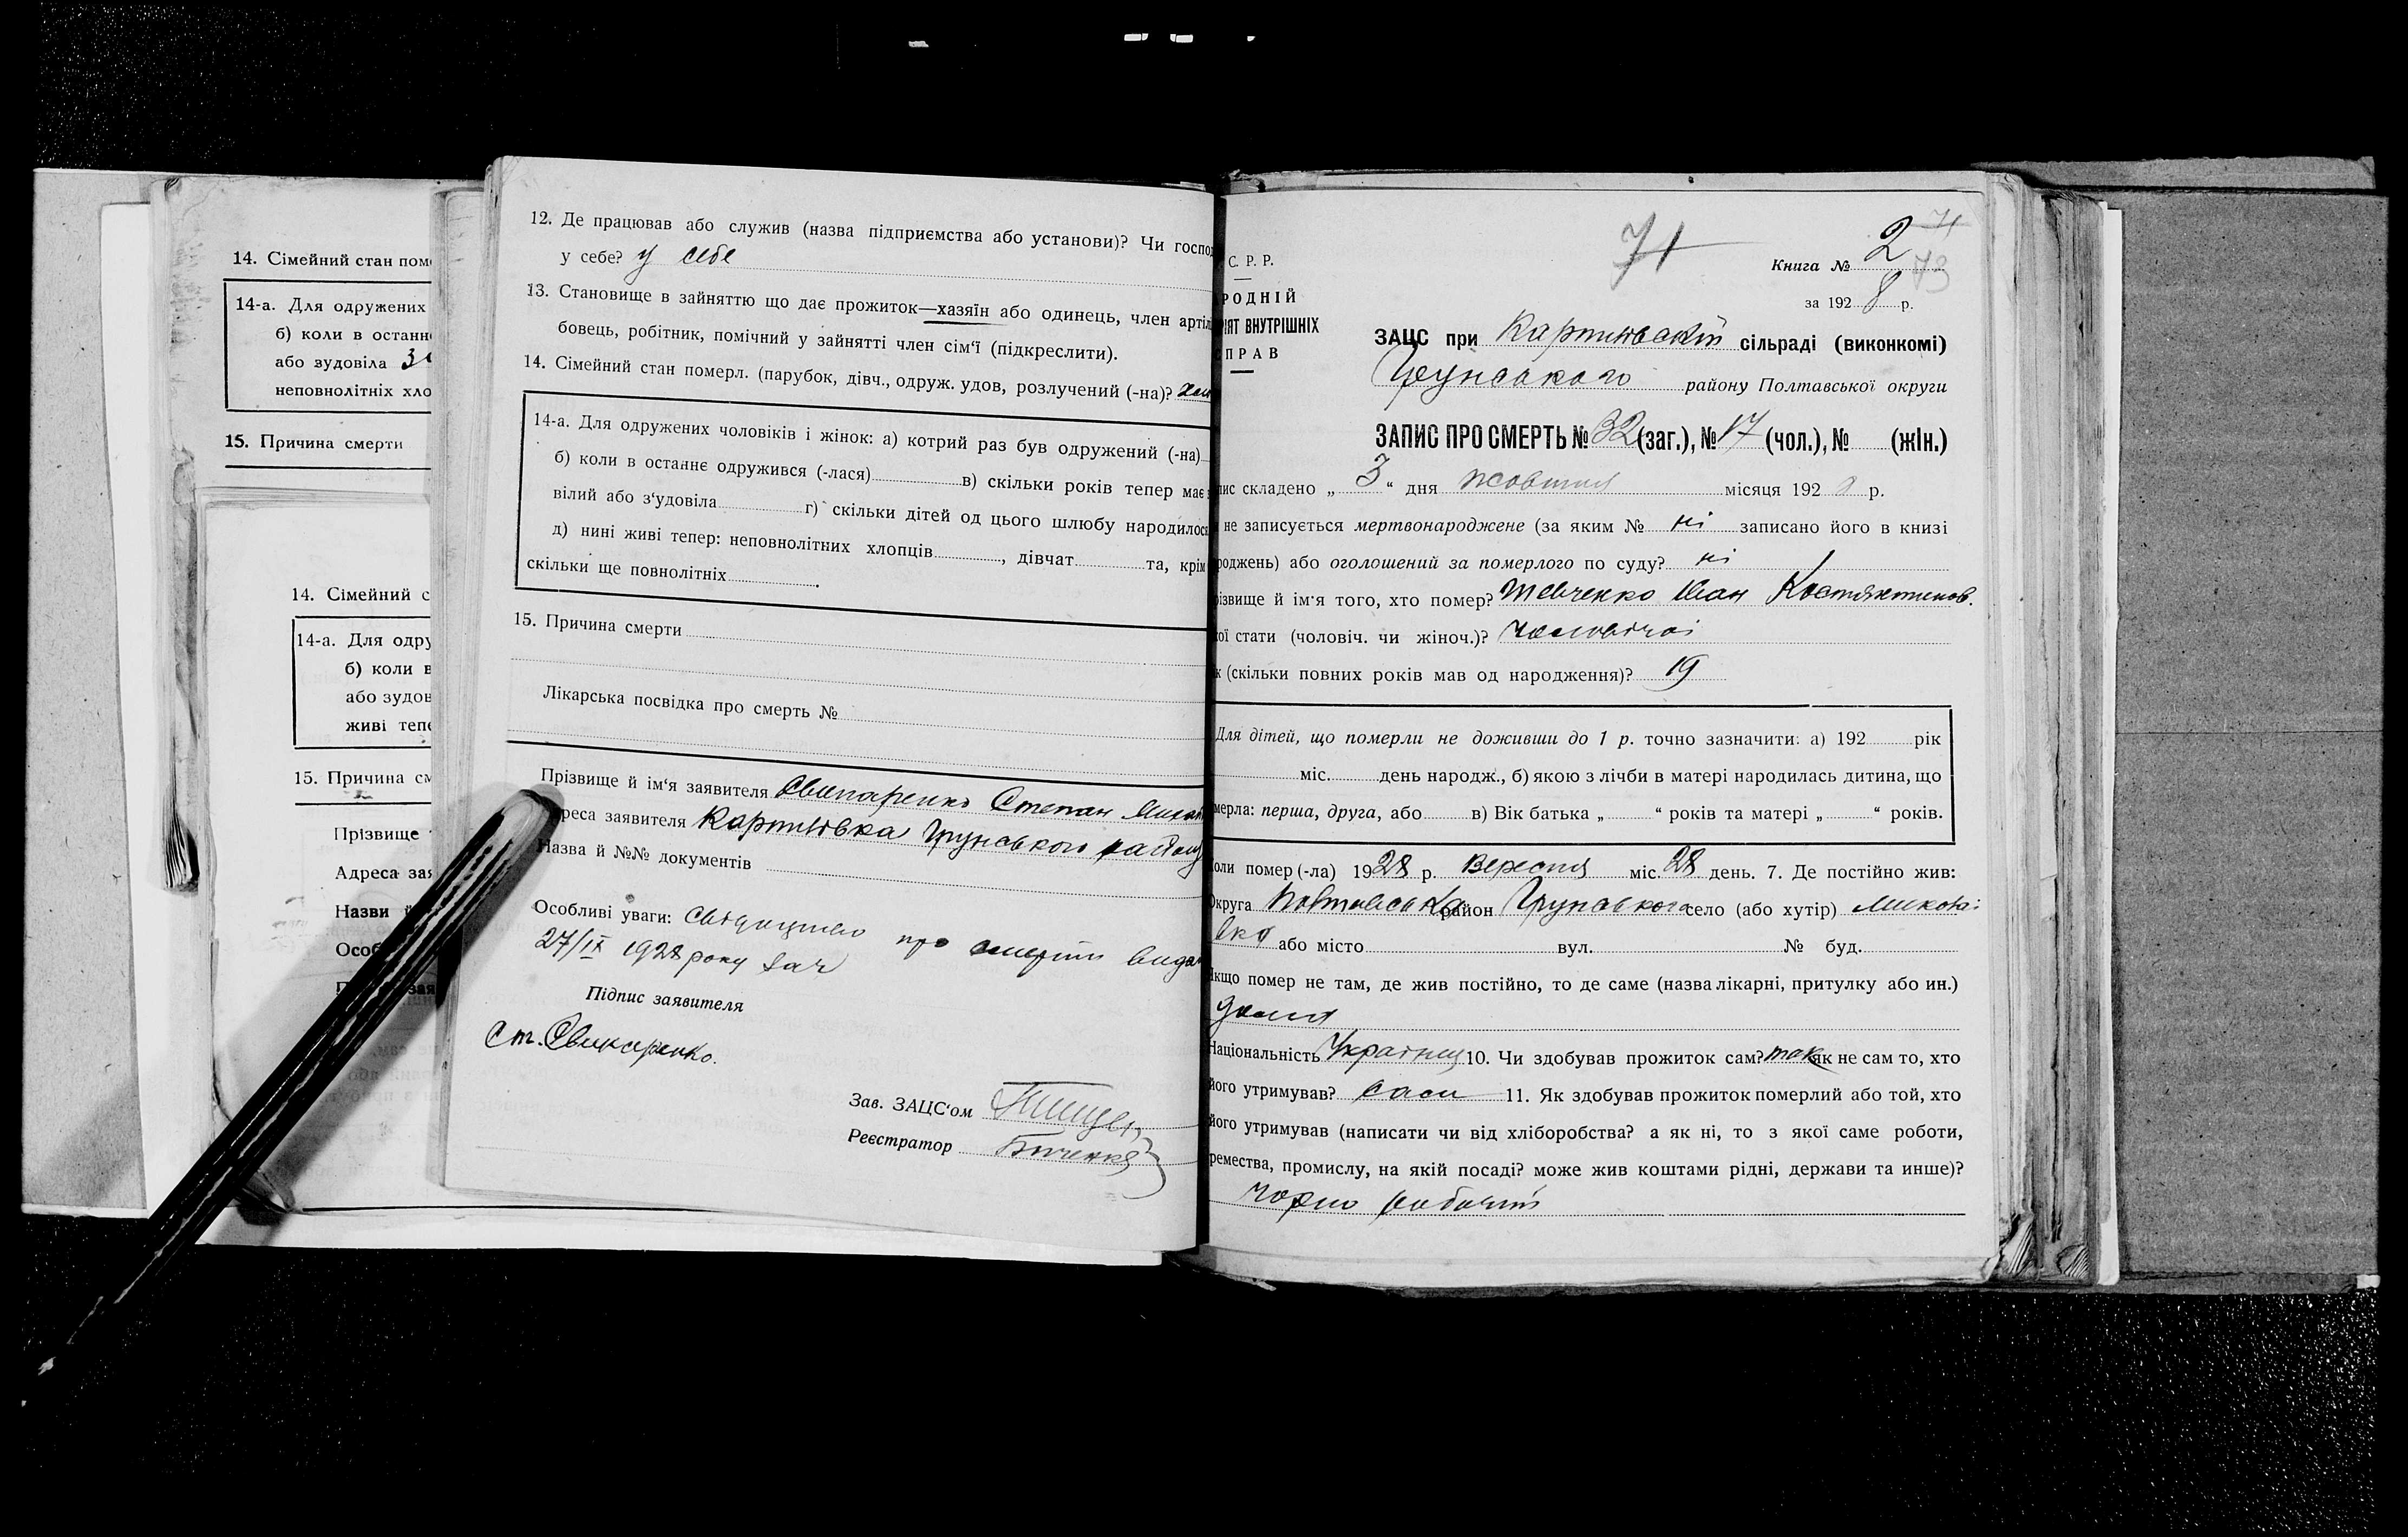 14. Сімейний стан пом
14-а. Для одружених
б) коли в останн
або зудовіла
неповнолітніх хло
15. Причина смерти
14. Сімейний с
14-а. Для одру
б) коли в
або зудов
живі тепе
15. Причина см
Прізвище
Адреса зая
Назви й
Особ
12. Де працював або служив (назва підприємства або установи)? Чи господ
у себе? у себе
13. Становище в зайняттю що дає прожиток—хазяїн або одинець, член артіл
бовець, робітник, помічний у зайнятті член сім'ї (підкреслити).
14. Сімейний стан померл. (парубок, дівч., одруж. удов, розлучений (-на)?
14-а. Для одружених чоловіків і жінок: а) котрий раз був одружений (-на)
б) коли в останнє одружився (-лася) в) скільки років тепер має
вілий або з'удовіла г) скільки дітей од цього шлюбу народилося
д) нині живі тепер: неповнолітних хлопців , дівчат та, крім
скільки ще повнолітніх .
15. Причина смерти
Лікарська посвідка про смерть №
Прізвище й ім'я заявителя Степан
реса заявителя Грунського району
Назва й №№ документів
Особливі уваги: про смерть видан
27/ІХ 1928 року
Підпис заявителя
Ст.
Зав. ЗАЦС'ом
Реєстратор
71
71
Книга № 2
73
за 1928 р.
С. Р. Р.
РОДНІЙ
ІЯТ ВНУТРІШНІХ
ПРАВ
ЗАЦС при сільраді (виконкомі)
Грунського району Полтавської округи
ЗАПИС ПРО СМЕРТЬ № 32 (заг.), № 17 (чол.), № (жін.)
пис складено „ 3 “ дня жовтня місяця 1928 р.
не записується мертвонароджене (за яким № ні записано його в книзі
роджень) або оголошений за померлого по суду? ні
різвище й ім'я того, хто помер? Шевченко Іван Костянтинов.
ої стати (чоловіч. чи жіноч.)? чоловічої
к (скільки повних років мав од народження)? 19
Для дітей, що померли не доживши до 1 р. точно зазначити: а) 192 рік
міс. день народж., б) якою з лічби в матері народилась дитина, що
мерла: перша, друга, або в) Вік батька „ “ років та матері „ “ років.
Коли помер (-ла) 1928 р. Вересня міс. 28 день. 7. Де постійно жив:
Округа Полтавська район Грунського село (або хутір) Миколаї
вка або місто вул. № буд.
Якщо помер не там, де жив постійно, то де саме (назва лікарні, притулку або ин.)
дома
Національність Українец 10. Чи здобував прожиток сам? так як не сам то, хто
його утримував? сам 11. Як здобував прожиток померлий або той, хто
його утримував (написати чи від хліборобства? а як ні, то з якої саме роботи,
ремества, промислу, на якій посаді? може жив коштами рідні, держави та инше)?
чорно рабочий